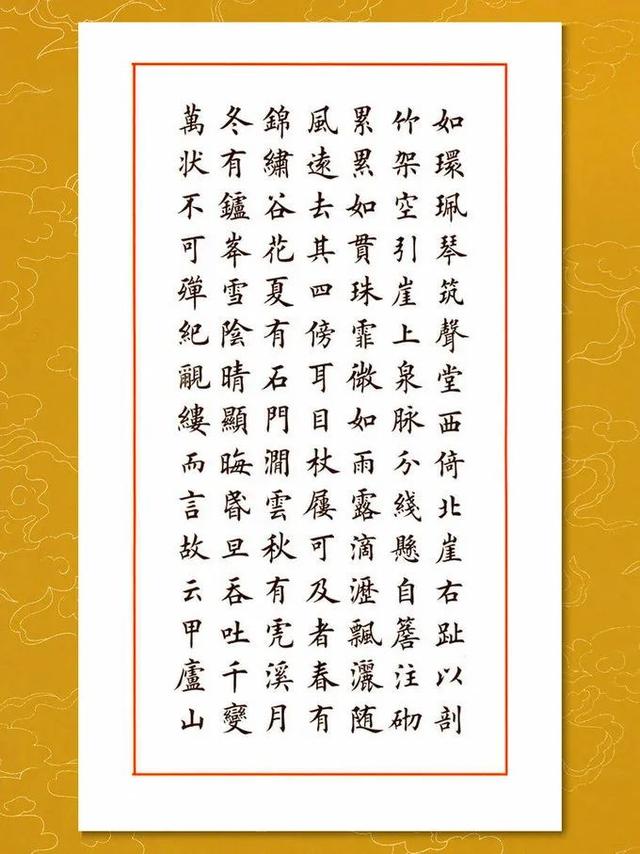 如環珮琴筑聲堂西倚北崖右趾以剖
竹架空引崖上泉脉分綫懸自簷注砌
累累如貫珠霏微如雨露滴瀝飄灑随
風遠去其四傍耳目杖屨可及者春有
錦繡谷花夏有石門澗雲秋有虎溪月
冬有鑪峯雪陰晴顯晦昬旦吞吐千變
萬状不可殫紀覼縷而言故云甲廬山